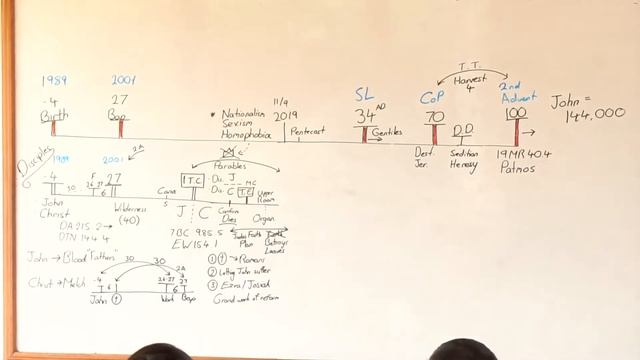 1989 2001
-4 27
Birth Bap
11/9
2019
* Nationalism
Sexism
Homophobia
Pentecost
SL
34 AD
Gentiles
T.T.
Harvest
4
CoP
70
Dest.
Jer.
D.D
Sedition
Heresy
2nd
Advent
100
19MR 404
Patmos
John =
144,000
Disciples
1989 2001 2A
-4 30 F 27
26 27
6
John
Christ
Wilderness
(40)
DA 215.2
DTN 194.4
Parables
I.T.C
Du. J
Du. C
MC
T.C
Upper
Room
Cana
5
J C
Confirm
Dies
Organ
7BC 985.5
EW 154.1
Judas Faith
Plan
Betrays
Leaves
John → Blood "Father"
Christ → Melch
30 30
-4 6
26 27 2A 27
6
John Work Bap
① → Romans
② Letting John suffer
③ Ezra/Josiah
Grand work of reform